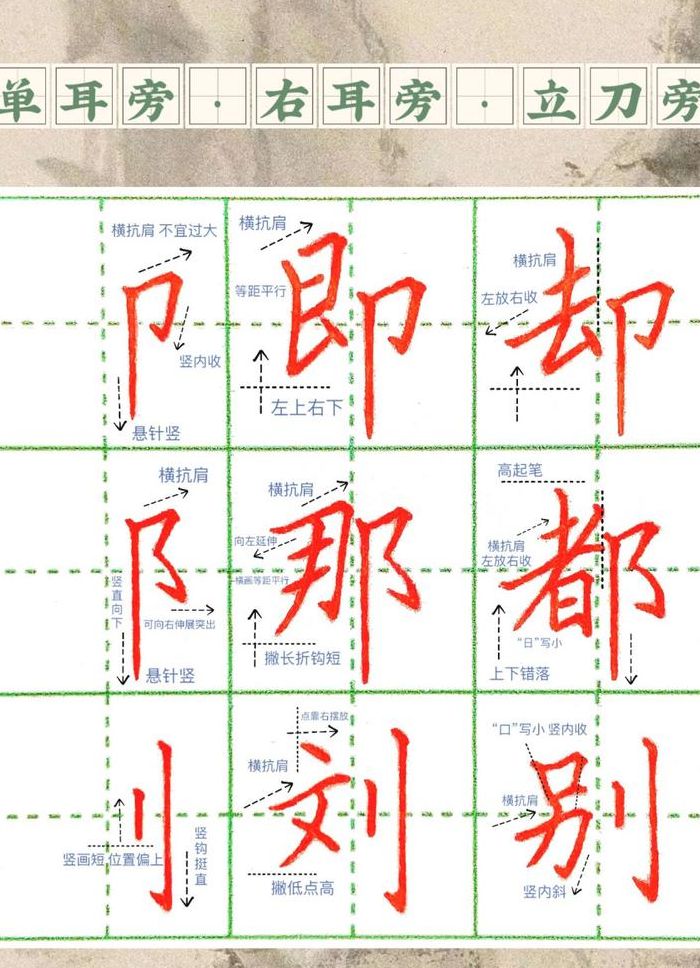 单耳旁·右耳旁·立刀旁
横抗肩 不宜过大
竖内收
悬针竖
卩
横抗肩
等距平行
左上右下
即
横抗肩
左放右收
却
横抗肩
竖直向下
可向右伸展突出
悬针竖
阝
横抗肩
向左延伸
横画等距平行
撇长折钩短
那
高起笔
横抗肩
左放右收
“日”写小
上下错落
都
竖画短,位置偏上
竖钩挺直
刂
点靠右摆放
横抗肩
撇低点高
刘
“口”写小 竖内收
横抗肩
竖内斜
别